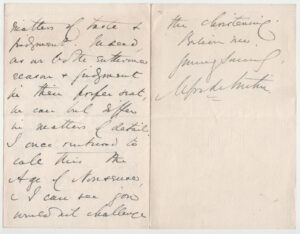 matters of taste &
judgment. Indeed,
as we both enthrone
reason & judgment
in their proper seat,
we can but differ
in matters of detail.
I once ventured to
call this the
Age of Nonsense,
& I can see you
would not challenge
the christening.
Believe me
Yours sincerely